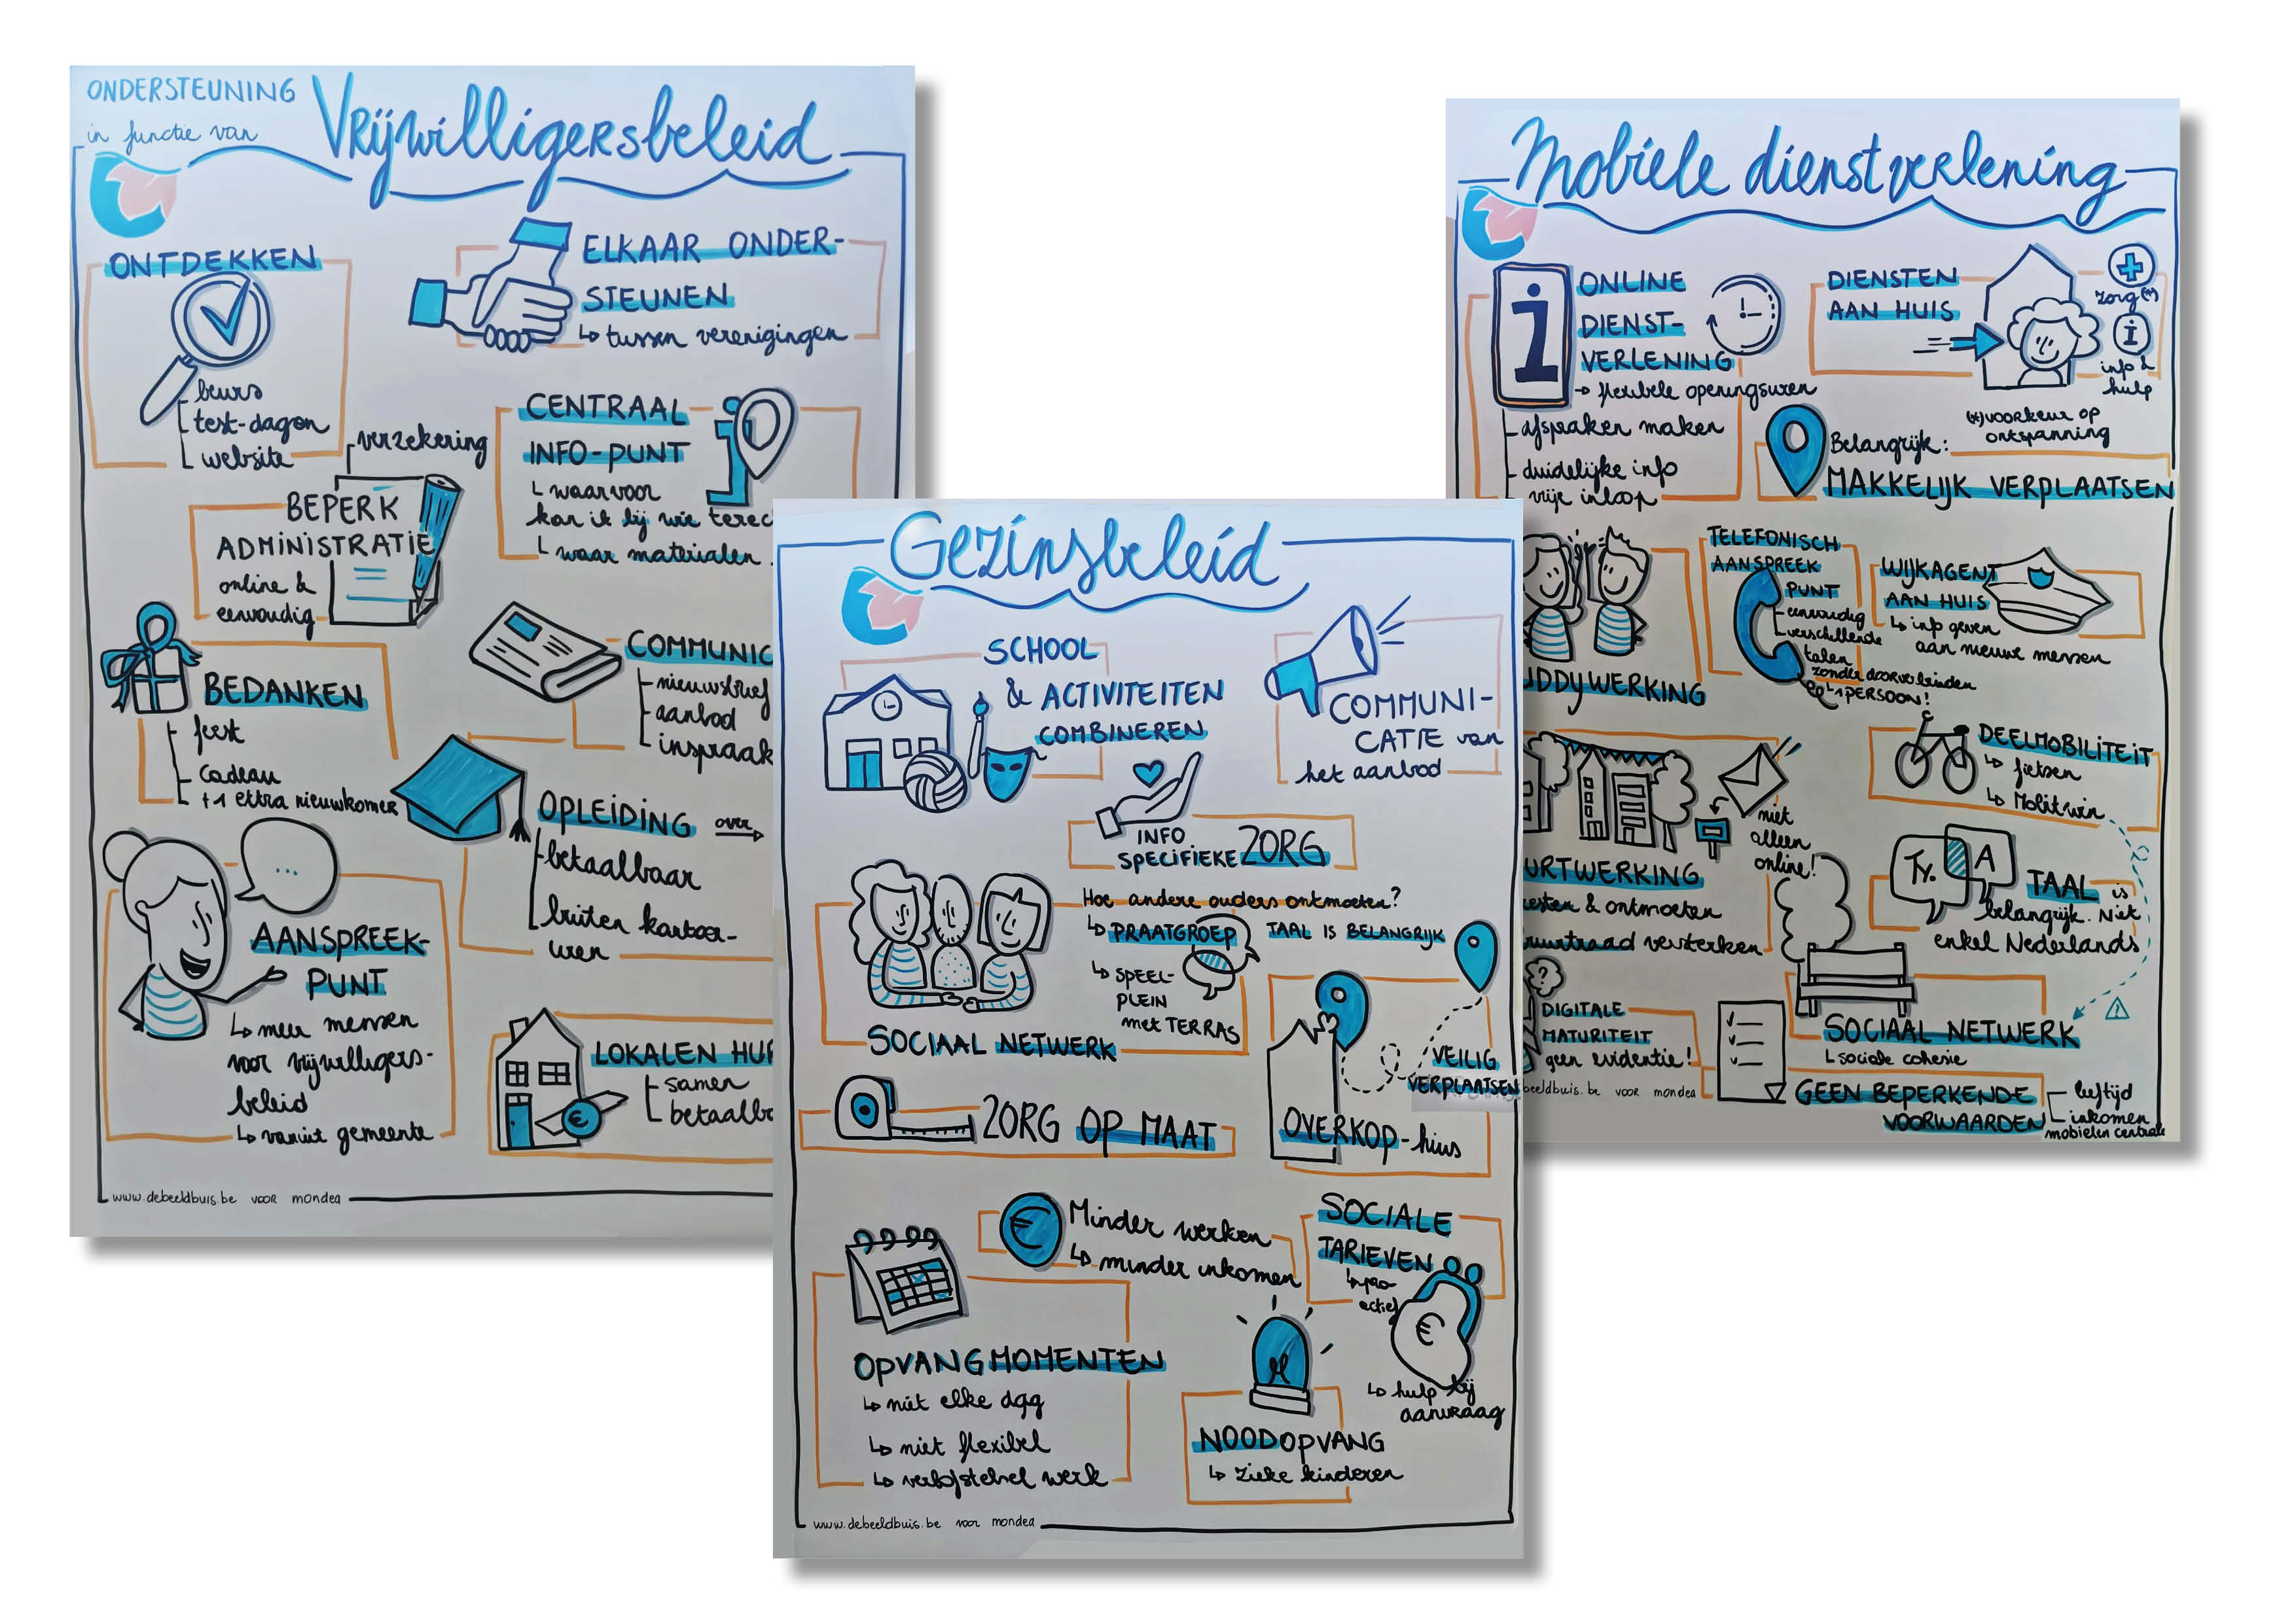 ONDERSTEUNING
in functie van
Vrijwilligersbeleid
ONTDEKKEN
beurs
test-dagen
website
ELKAAR ONDER-
STEUNEN
↳ tussen verenigingen
verzekering
BEPERK
ADMINISTRATIE
online &
eenvoudig
CENTRAAL
INFO-PUNT
waarvoor
kan ik bij wie terec
waar materialen
BEDANKEN
feest
cadeau
+1 extra nieuwkomer
COMMUNIC
nieuwsbrief
aanbod
inspraak
OPLEIDING over →
betaalbaar
buiten kantoor-
uren
...
AANSPREEK-
PUNT
↳ meer mensen
voor vrijwilligers-
beleid
↳ vanuit gemeente
LOKALEN HU
samen
betaalb
€
www.debeeldbuis.be voor mondea
Gezinsbeleid
SCHOOL
& ACTIVITEITEN
COMBINEREN
COMMUNI-
CATIE van
het aanbod
INFO
SPECIFIEKE ZORG
Hoe andere ouders ontmoeten?
↳ PRAATGROEP
TAAL IS BELANGRIJK
↳ SPEEL-
PLEIN
met TERRAS
SOCIAAL NETWERK
VEILIG
VERPLAATSEN
OVERKOP-huis
ZORG OP MAAT
€
Minder werken
↳ minder inkomen
SOCIALE
TARIEVEN
↳ pro-
actief
€
↳ hulp bij
aanvraag
OPVANGMOMENTEN
↳ niet elke dag
↳ niet flexibel
↳ verlofstelsel werk
NOODOPVANG
↳ zieke kinderen
www.debeeldbuis.be voor mondea
Mobiele dienstverlening
i
ONLINE
DIENST-
VERLENING
→ flexibele openingsuren
afspraken maken
duidelijke info
vrije inloop
DIENSTEN
AAN HUIS
zorg (*)
i
info &
hulp
(*) voorkeur op
ontspanning
Belangrijk:
MAKKELIJK VERPLAATSEN
UDDYWERKING
TELEFONISCH
AANSPREEK
PUNT
eenvoudig
verschillende
talen
zonder doorverbinden
1 PERSOON!
WIJKAGENT
AAN HUIS
↳ info geven
aan nieuwe mensen
URTWERKING
esten & ontmoeten
uurtraad versterken
niet
alleen
online!
DEELMOBILITEIT
↳ fietsen
↳ Mobitwin
A
TAAL is
belangrijk. Niet
enkel Nederlands
?
DIGITALE
MATURITEIT
geen evidentie!
SOCIAAL NETWERK
sociale cohesie
GEEN BEPERKENDE
VOORWAARDEN
leeftijd
inkomen
mobielen centrale
beeldbuis.be voor mondea